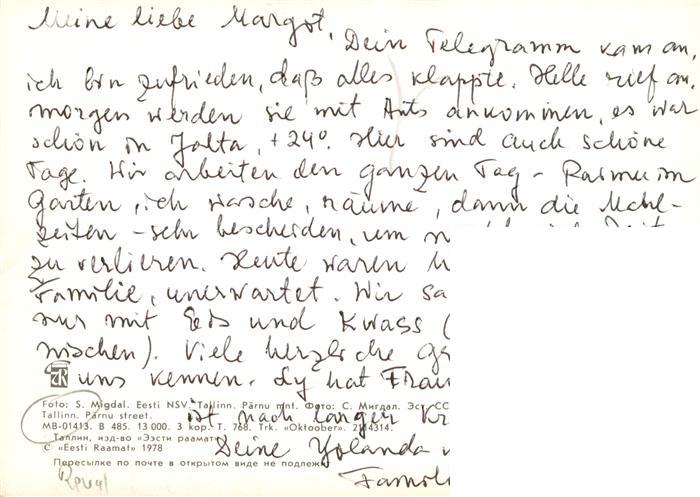 Meine liebe Margot,
Dein Telegramm kam an,
ich bin zufrieden, daß alles klappte. Helle rief an,
morgen werden sie mit Ants ankommen, es war
schön in Jalta, +24°. Hier sind auch schöne
Tage. Wir arbeiten den ganzen Tag - Rasmus im
Garten, ich wasche, räume, dann die Mahl-
zeiten - sehr bescheiden, um
zu verlieren. Heute waren
Familie, unerwartet. Wir
nur mit Eis und Kwass (
mischen). Viele herzliche
uns kennen. Ly hat
Foto: S. Migdal. Eesti NSV. Tallinn. Pärnu mnt. Фото: С. Мигдал. Эст. СС
Tallinn. Pärnu street.
ist nach langer
MB-01413. B 485. 13 000. 3 kop. T. 768. Trk. «Oktoober». 2114314.
Таллин, изд-во «Ээсти раамат»
© «Eesti Raamat» 1978
Deine Yolanda
Пересылке по почте в открытом виде не подлежит
Reval